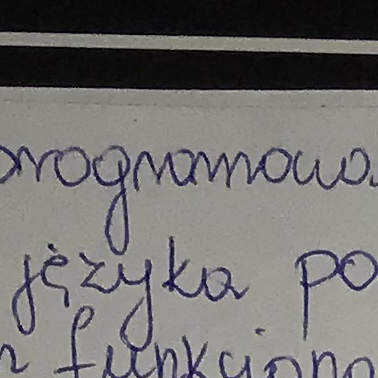 programowa
języka po
funkcjona